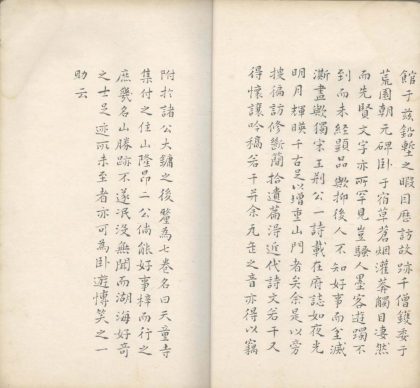 館于茲鉛墼之暇目歷訪故跡千僧鑊委于
荒園朝元碑卧于宿草蒼烟灌莽觸目淒然
而先賢文字亦所罕見豈騷人墨客遊躅不
到而未經顯品歟抑後人不知好事而至滅
漸盡歟獨宋王荆公一詩載在府誌如夜光
明月輝暎千古足以增重山門者矣余是以旁
搜徧訪修斷簡拾遺篇得近代詩文若干又
得懷讓吟稿若干并余兄㐄之音亦得以竊
附於諸公大韻之後釐為七卷名曰天童寺
集付之住山隆昂二公倘能好事梓而行之
庶幾名山勝跡不遂泯沒無聞而湖海好奇
之士足迹所未至者亦可為卧遊愽笑之一
助云